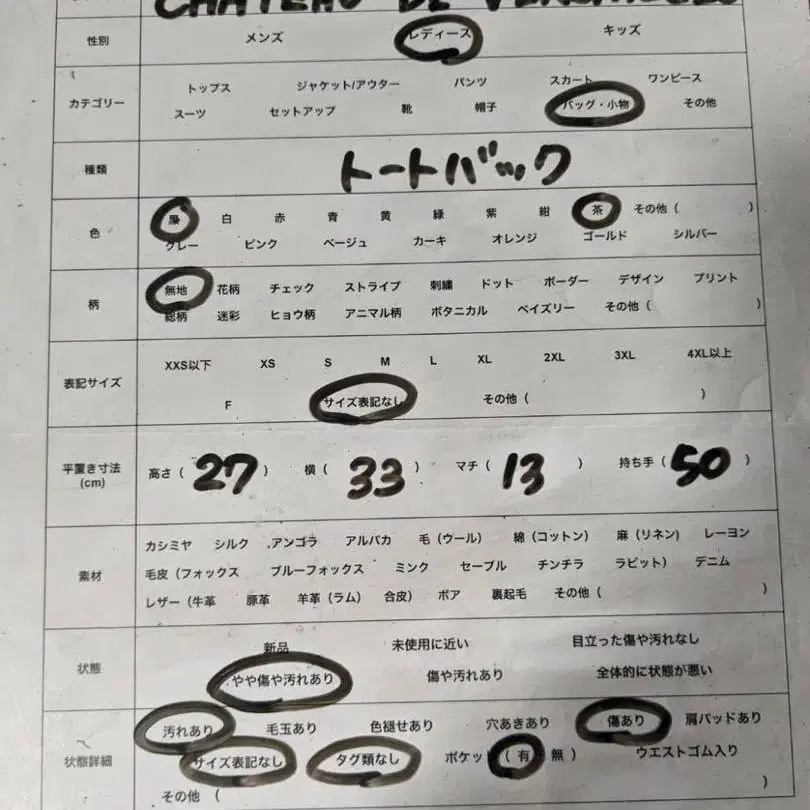 CHATEAU DE VERSAILLES
性別 メンズ レディース キッズ
カテゴリー トップス ジャケット/アウター パンツ スカート ワンピース
スーツ セットアップ 靴 帽子 バッグ・小物 その他
種類 トートバック
色 黒 白 赤 青 黄 緑 紫 紺 茶 その他 ( )
グレー ピンク ベージュ カーキ オレンジ ゴールド シルバー
柄 無地 花柄 チェック ストライプ 刺繍 ドット ボーダー デザイン プリント
総柄 迷彩 ヒョウ柄 アニマル柄 ボタニカル ペイズリー その他 ( )
表記サイズ XXS以下 XS S M L XL 2XL 3XL 4XL以上
F サイズ表記なし その他 ( )
平置き寸法 (cm) 高さ ( 27 ) 横 ( 33 ) マチ ( 13 ) 持ち手 ( 50 )
素材 カシミヤ シルク アンゴラ アルパカ 毛 (ウール) 綿 (コットン) 麻 (リネン) レーヨン
毛皮 (フォックス ブルーフォックス ミンク セーブル チンチラ ラビット) デニム
レザー (牛革 豚革 羊革 (ラム) 合皮) ボア 裏起毛 その他 ( )
状態 新品 未使用に近い 目立った傷や汚れなし
やや傷や汚れあり 傷や汚れあり 全体的に状態が悪い
状態詳細 汚れあり 毛玉あり 色褪せあり 穴あきあり 傷あり 肩パッドあり
サイズ表記なし タグ類なし ポケット ( 有 無 ) ウエストゴム入り
その他 ( )